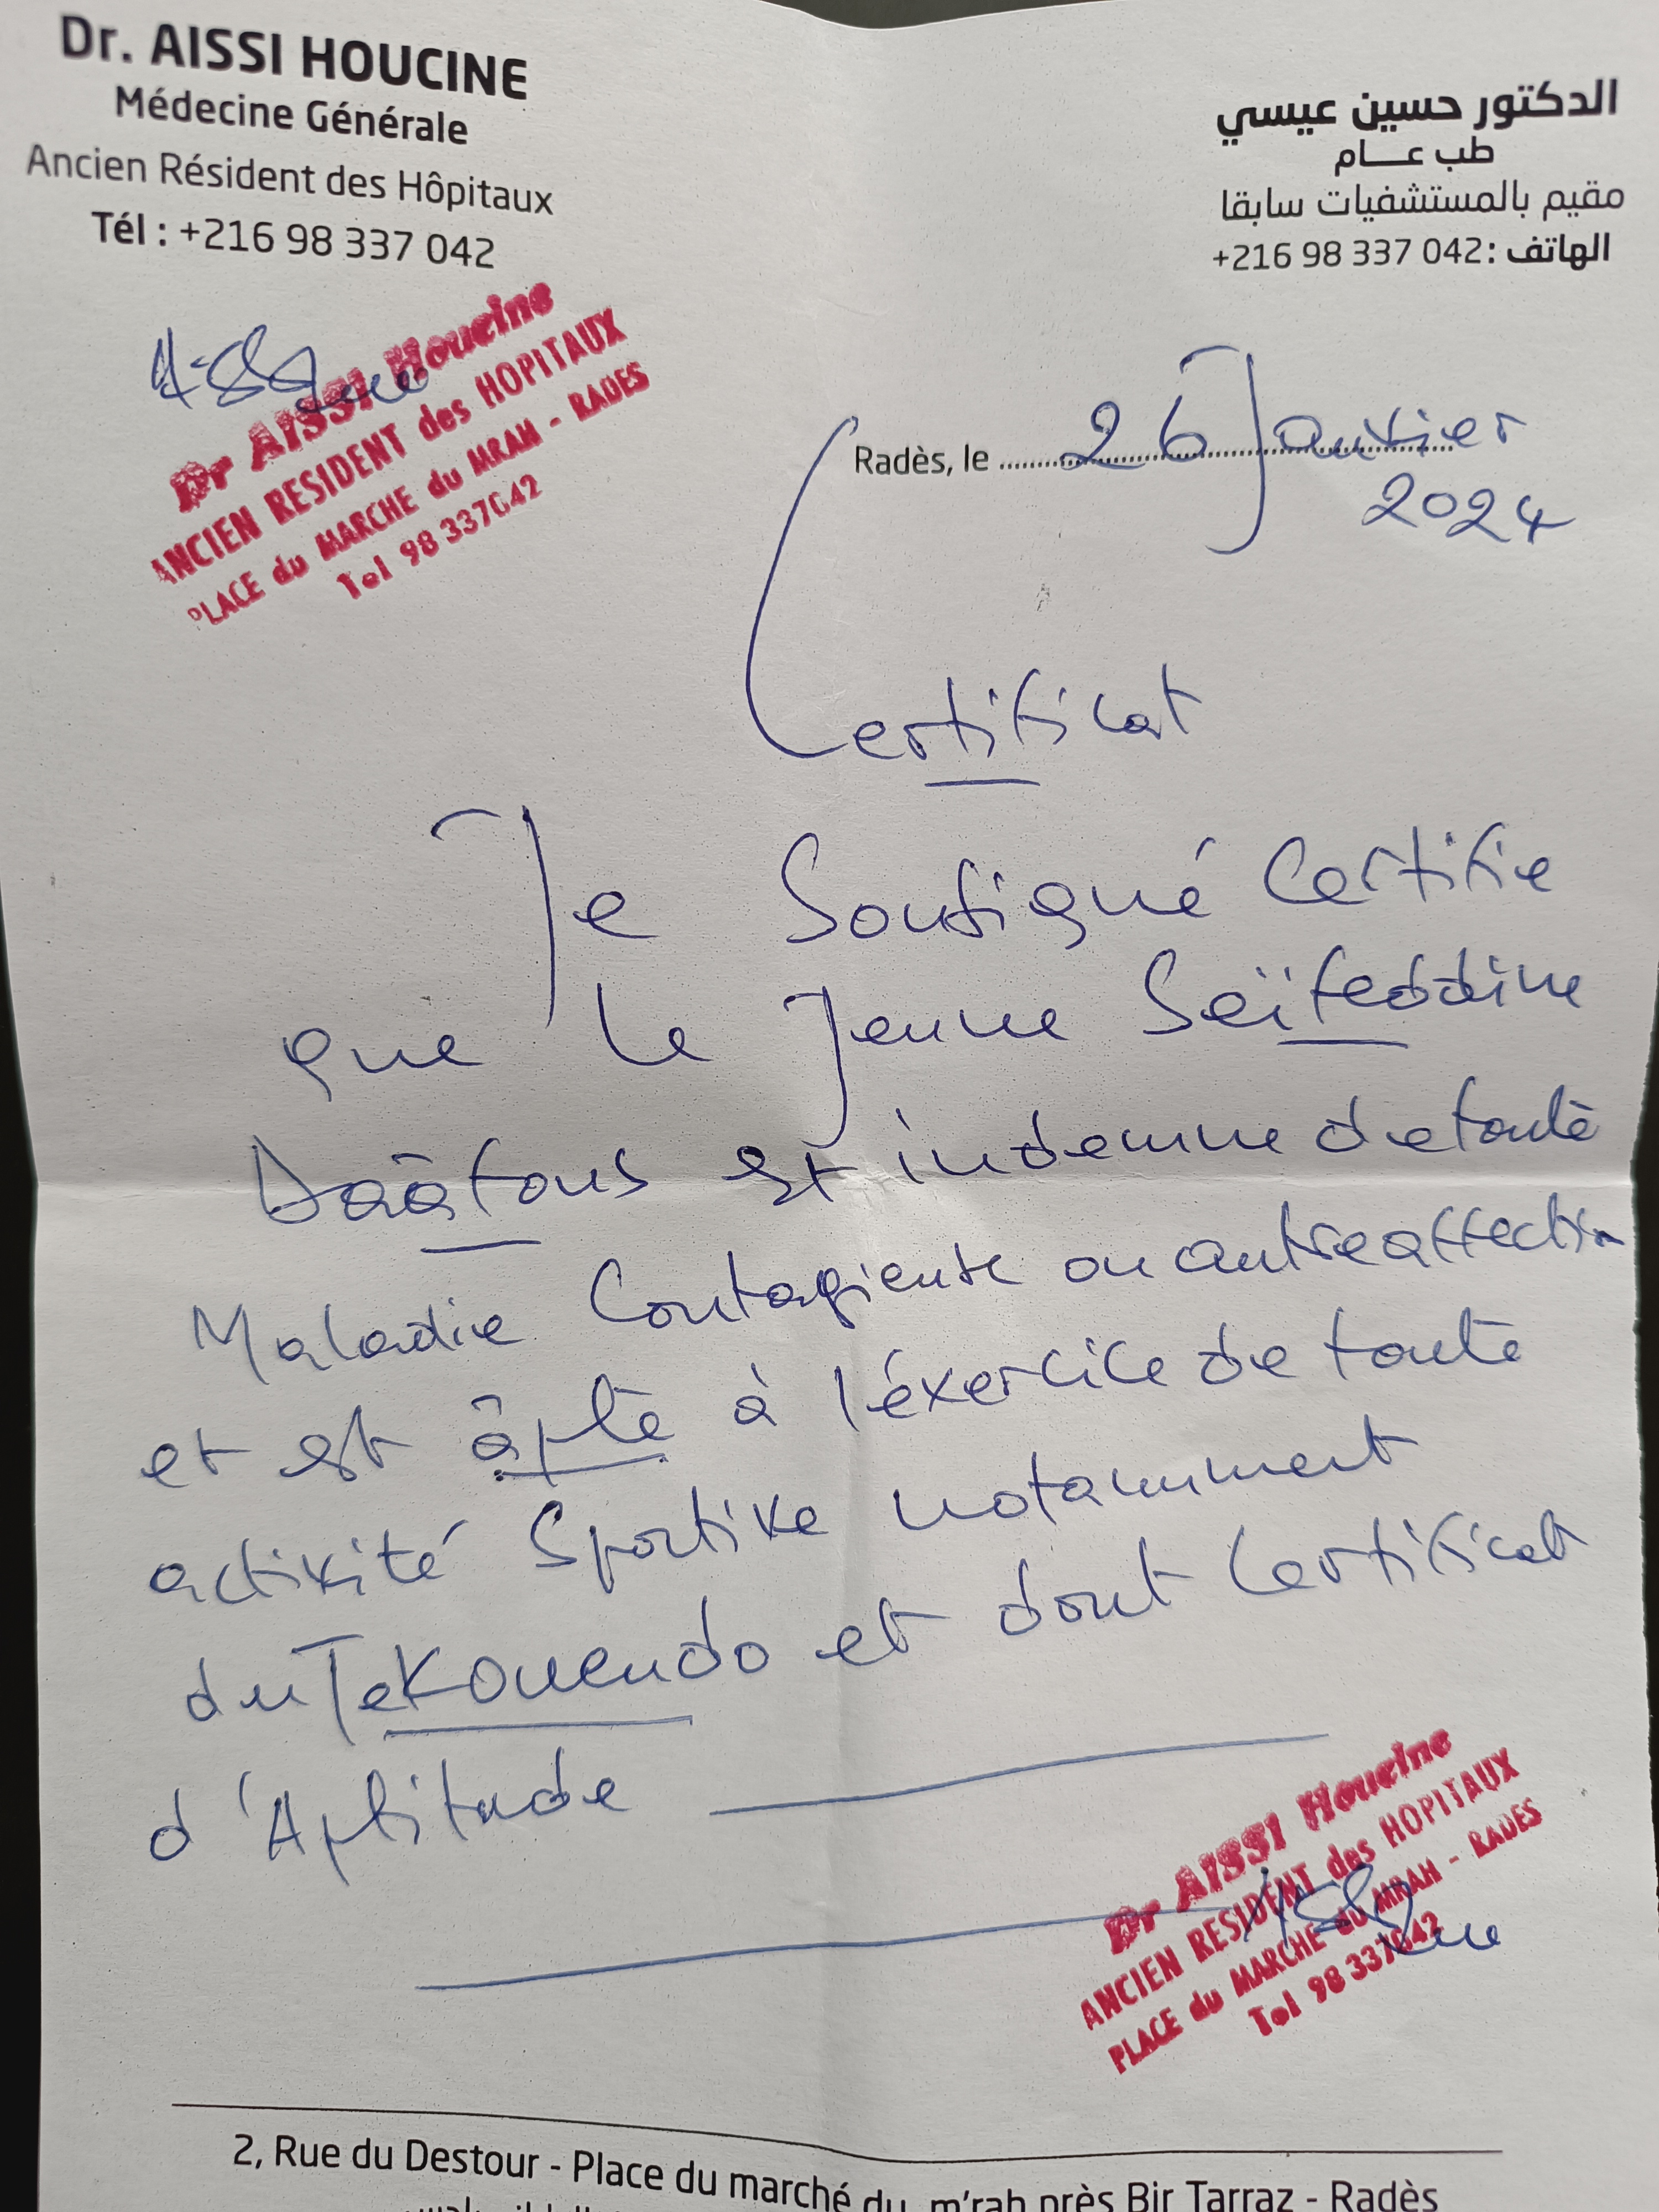 Dr. AISSI HOUCINE
Médecine Générale
Ancien Résident des Hôpitaux
Tél : +216 98 337 042
الدكتور حسين عيسي
طب عــــام
مقيم بالمستشفيات سابقا
الهاتف :042 337 98 216+
Dr AISSI Houcine
ANCIEN RESIDENT des HOPITAUX
PLACE du MARCHE du MRAH - RADES
Tel 98 337042
Radès, le 26 Janvier
2024
Certificat
Je Soussigné Certifie
que le Jeune Seïfeddine
Dââfous est indemne de toute
Maladie Contagieuse ou autre affection
et est âpte à l'éxercice de toute
activité Sportive notamment
du TeKOUENDO et dont Certificat
d'Aptitude
Dr AISSI Houcine
ANCIEN RESIDENT des HOPITAUX
PLACE du MARCHE du MRAH - RADES
Tel 98 337042
2, Rue du Destour - Place du marché du m'rah près Bir Tarraz - Radès